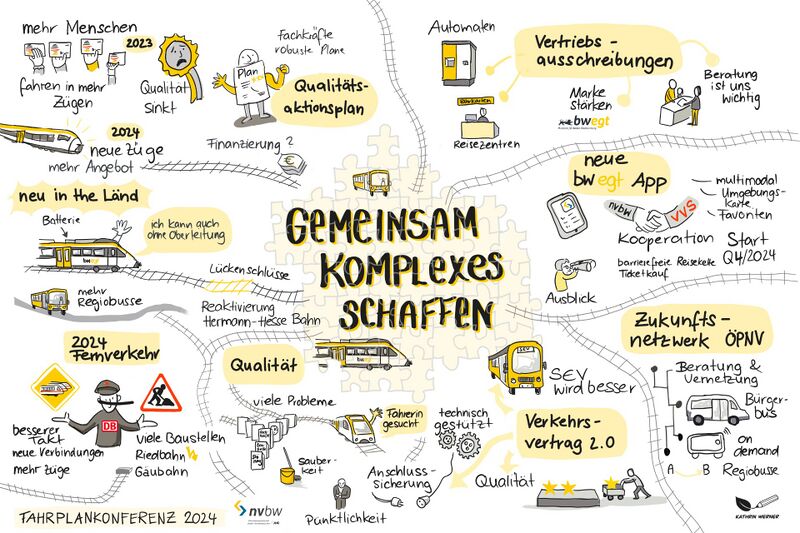 mehr Menschen
2023
fahren in mehr
Zügen
Qualität
sinkt
Fachkräfte
robuste Pläne
Plan
Qualitäts-
aktionsplan
Finanzierung?
€
2024
neue Züge
mehr Angebot
Automaten
Vertriebs-
ausschreibungen
Marke
stärken
bwegt
Beratung
ist uns
wichtig
Reisezentren
neu in the Länd
Batterie
ich kann auch
ohne Oberleitung
bwegt
mehr
Regiobusse
Lückenschlüsse
Reaktivierung
Hermann-Hesse Bahn
GEMEINSAM
KOMPLEXES
SCHAFFEN
neue
bwegt App
nvbw
VVS
multimodal
Umgebungs-
karte
Favoriten
Kooperation
Start
Q4/2024
barrierefreie Reisekette
Ticketkauf
Ausblick
2024
Fernverkehr
DB
besserer
Takt
neue Verbindungen
mehr Züge
viele Baustellen
Riedbahn
Gäubahn
Qualität
viele Probleme
Fahrerin
gesucht
Sauber-
keit
Pünktlichkeit
SEV
SEV
wird besser
technisch
gestützt
Anschluss-
sicherung
Verkehrs-
vertrag 2.0
Qualität
Zukunfts-
netzwerk ÖPNV
Beratung &
Vernetzung
Bürger-
bus
on
demand
A B Regiobusse
FAHRPLANKONFERENZ 2024
nvbw
KATHRIN WERNER